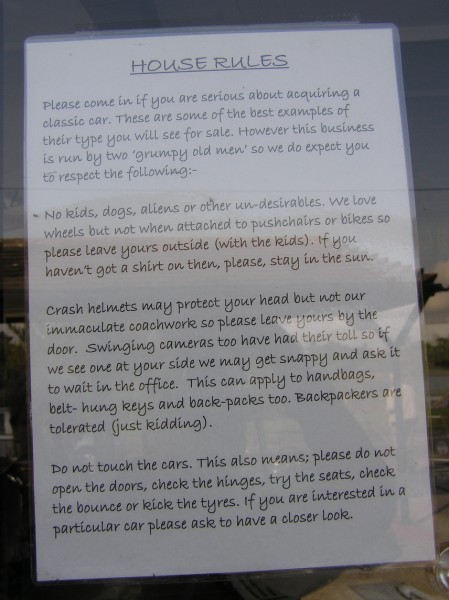 HOUSE RULES
Please come in if you are serious about acquiring a
classic car. These are some of the best examples of
their type you will see for sale. However this business
is run by two 'grumpy old men' so we do expect you
to respect the following:-
No kids, dogs, aliens or other un-desirables. We love
wheels but not when attached to pushchairs or bikes so
please leave yours outside (with the kids). If you
haven't got a shirt on then, please, stay in the sun.
Crash helmets may protect your head but not our
immaculate coachwork so please leave yours by the
door. Swinging cameras too have had their toll so if
we see one at your side we may get snappy and ask it
to wait in the office. This can apply to handbags,
belt- hung keys and back-packs too. Backpackers are
tolerated (just kidding).
Do not touch the cars. This also means; please do not
open the doors, check the hinges, try the seats, check
the bounce or kick the tyres. If you are interested in a
particular car please ask to have a closer look.